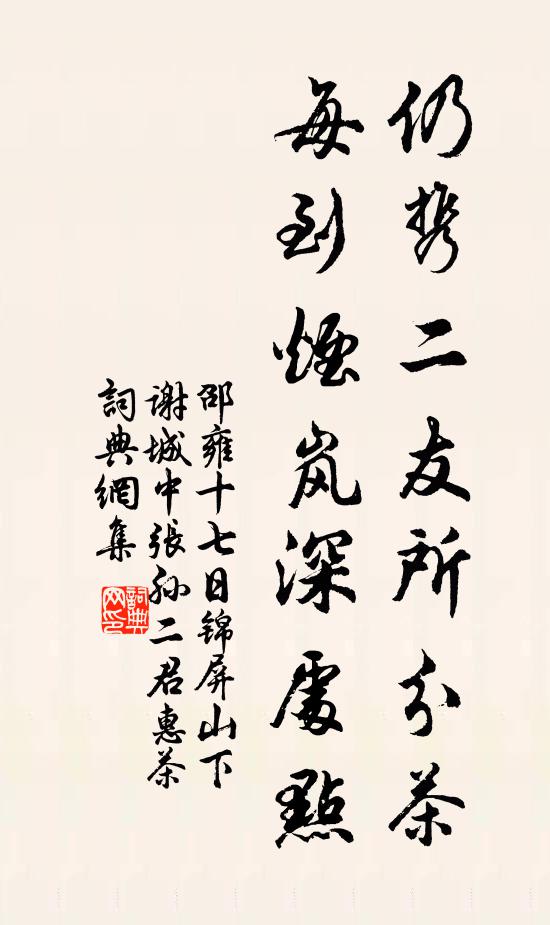 仍携二友所分茶
每到煙岚深處點
邵雍十七日锦屏山下
谢城中張孙二君惠茶
詞典網集
詞典
网印